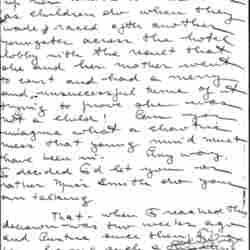 as children do when they
waded raced after another
youngster across the hotel
lobby with the result that
she and her mother went
to court and had a merry
and unsuccessful time of
trying to prove she was
not a child! Can you
imagine what a
mess that young mind must
have been in. Any way,
I decided I'd let you or
rather Miss Smith do your
own talking.
That - when I reached this
decision was two weeks ago
and